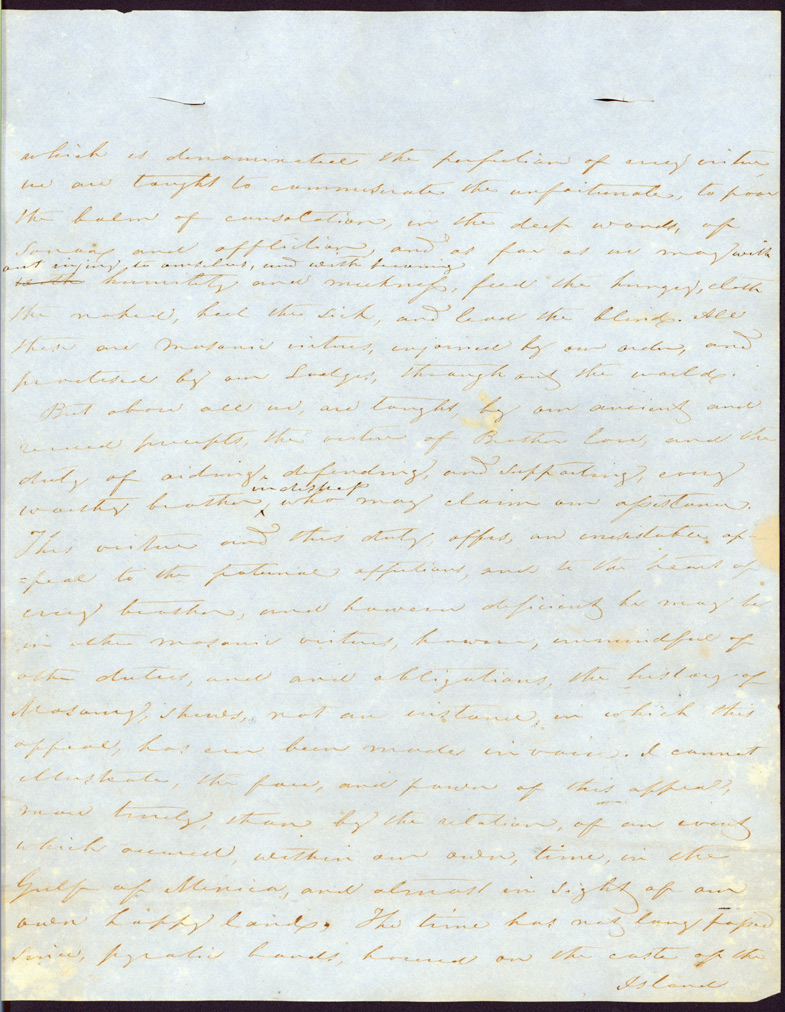 which is denominated the perfection of every virtue,
we are taught to commiserate the unfortunate, to poor
the balm of consolation, in the deep wounds, of
sorrow and affliction, and as far as we may with
out injury to ourselves, and with becoming
humility and meekness, feed the hungry, cloth
the naked, heal the sick, and lead the blind. All
these are masonic virtues, enjoined by our order, and
practised by our Lodges, through out the world.
But above all we, are taught, by our ancient and
precepts, the virtue of Brother love, and the
duty of aiding, defending, and supporting, every
in distress
worthy brother, who may claim our assistance.
This virtue and this duty, offers, an irresistable ap-
=peal to the paternal affections, and to the heart of
every brother, and however deficient he may be
in other masonic virtues, however, unmindful of
other duties, and and obligations, the history of
Masonry, shews, not an instance, in which this
appeal, has ever been made in vain. I cannot
illustrate, the force, and power of this appeal,
more truely, than by the relation, of an event
which occured, within our own, time, in the
Gulf of Mexico, and almost in sight of our
own happy land. The time has not long passed
since, pyratic bands, hovered on the caste of the
Island